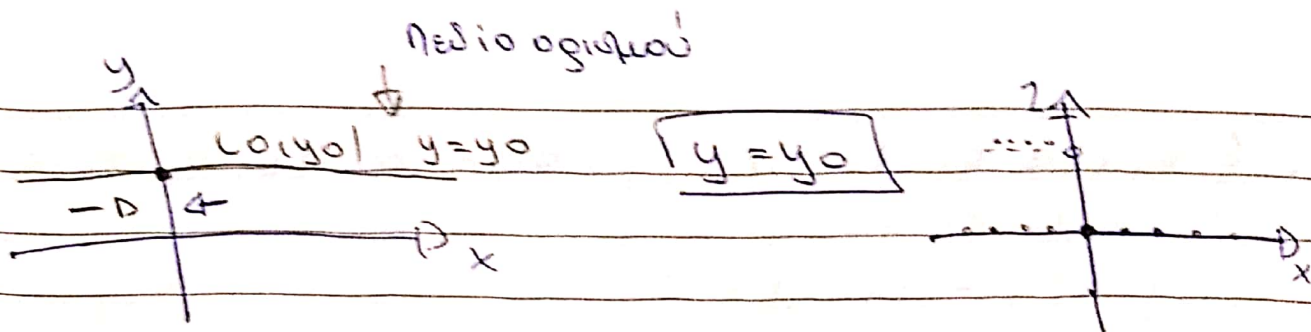 Πεδίο ορισμού
y
(0,y0) y=y0
y=y0
x
1
x